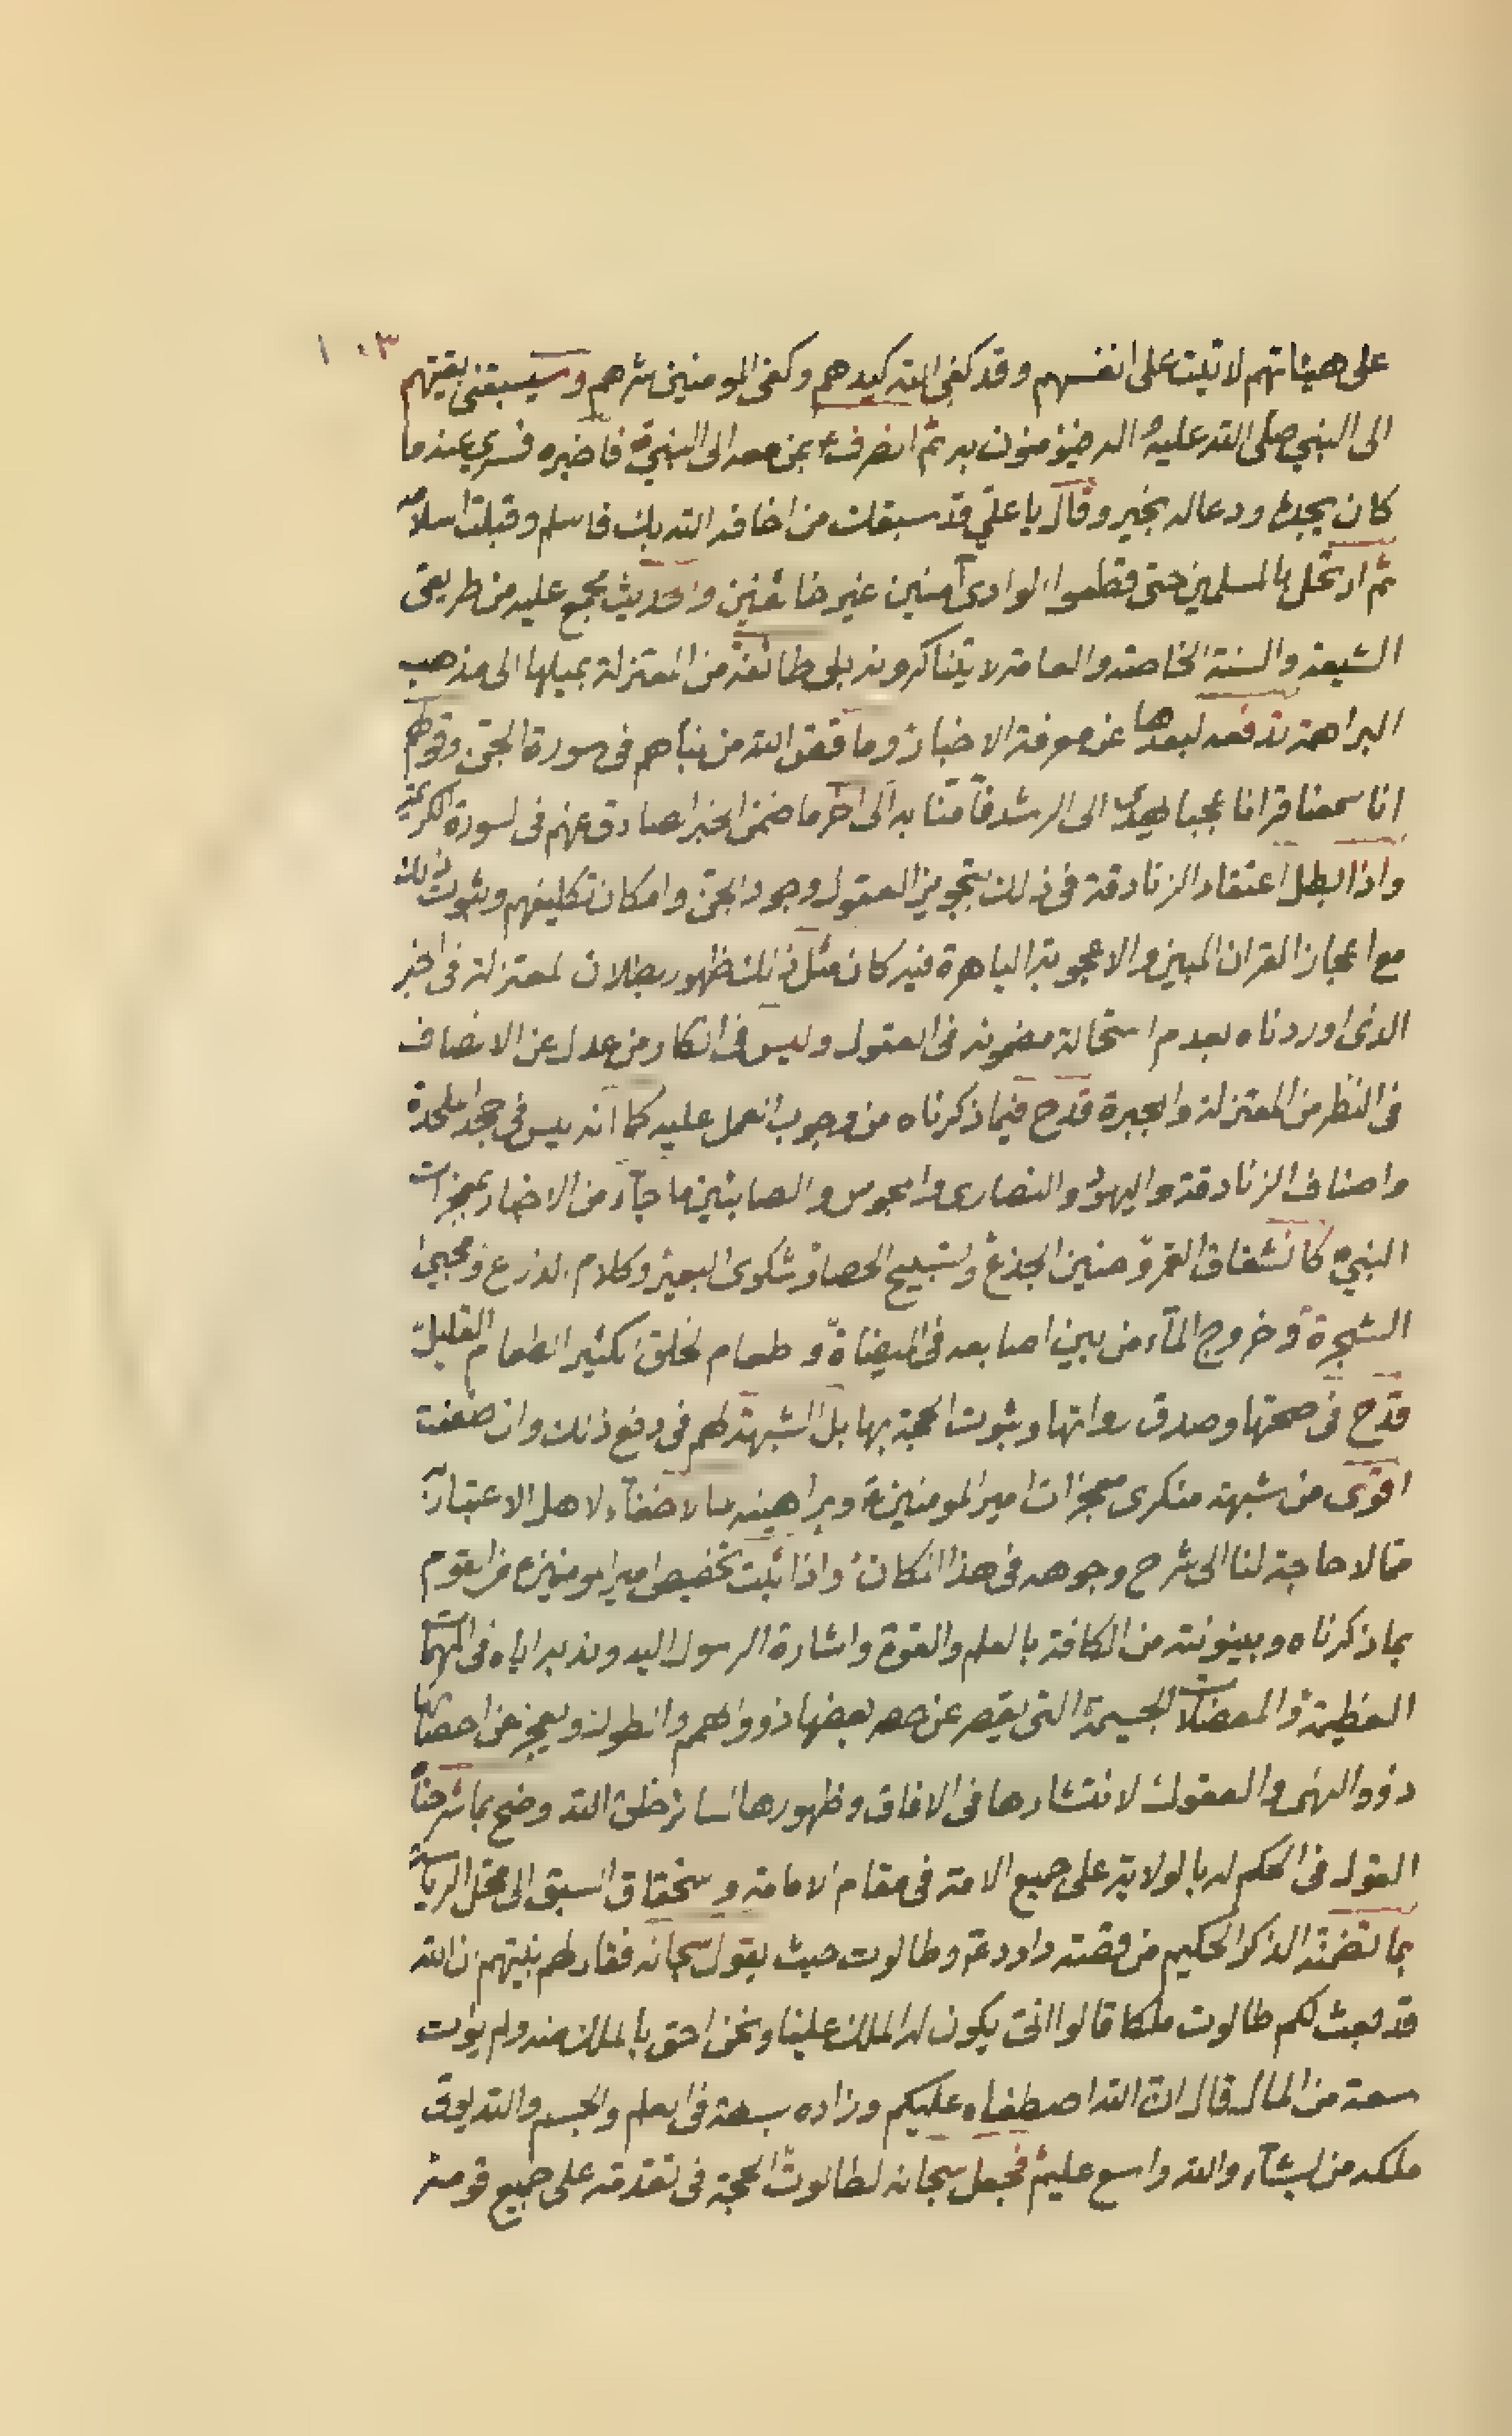 ١٠٣
على هيئاتهم لاتيت على انفسهم وقد كفى الله كيدهم وكفى المومنين شرهم وسيسبقنى بقيتهم
الى النبي صلى الله عليه واله فيؤمنون به ثم انصرف بمن معه الى النبي فاخبره فسرى عنه ما
كان يجده ودعا له بخير وقال يا علي قد سبقك من اخافه الله بك فاسلم وقبلت اسلامه
ثم ارتحل بالمسلمين حتى قطعوا الوادى آمنين غير خائفين والحديث مجمع عليه من طريق
الشيعة والسنة الخاصة والعامة لا يتناكرونه بلى طائفة من المعتزلة بميلها الى مذهب
البراهمة تدفعه لبعدها عن معرفة الاخبار وما قصّ الله من نبأهم فى سورة الجن وقولهم
انا سمعنا قرانا عجبا يهدى الى الرشد فآمنا به الى اخر ما ضمن الخبر الصادق عنهم فى السورة الكريمة
واذا بطل اعتقاد الزنادقة فى ذلك بتجويز العقول وجود الجن وامكان تكليفهم وثبوت ذلك
مع اعجاز القران المبين والاعجوبة الباهرة فيه كان مثل ذلك ظهور بطلان المعتزلة فى الخبر
الذى اوردناه بعدم استحالة مضمونه فى العقول وليس فى انكار من عدل عن الانصاف
فى النظر من المعتزلة والمجبرة قدح فيما ذكرناه من وجوب العمل عليه كما انه ليس فى جحد الملحدة
واصناف الزنادقة واليهود والنصارى والمجوس والصابئين ما جآء من الاخبار بمعجزات
النبي كانشقاق القمر وحنين الجذع وتسبيح الحصا وشكوى البعير وكلام الذرع ومجيئ
الشجرة وخروج المآء من بين اصابعه فى الميضاة وطعام الخلق الكثير الطعام القليل
قدح فى صحتها وصدق رواتها وثبوت الحجة بها بل الشبهة لهم فى دفع ذلك وان ضعفت
اقوى من شبهة منكرى معجزات امير المومنين وبراهينه ما لا خفآء لاهل الاعتبار به
مما لا حاجة لنا الى شرح وجوهه فى هذا المكان واذا ثبت تخصيص امير المومنين من القوم
بما ذكرناه وبينونته من الكافة بالعلم والقوة واشارة الرسول اليه وندبه اياه فى المهمات
العظيمة والمعضلات الجسيمة التى يقصر عن حصر بعضها ذووا الهمم والطول ويعجز عن احصائها
ذووا النهى والعقول لانتشارها فى الافاق وظهورها لسائر خلق الله وضح بما شرحنا
القول فى الحكم له بالولاية على جميع الامة فى مقام الامامة واستحقاق السبق الى محل الرياسة
بما تضمنه الذكر الحكيم من قصة داود وطالوت حيث يقول سبحانه فقال لهم نبيهم ان الله
قد بعث لكم طالوت ملكا قالوا انى يكون له الملك علينا ونحن احق بالملك منه ولم يؤت
سعة من المال قال ان الله اصطفاه عليكم وزاده بسطة فى العلم والجسم والله يؤتى
ملكه من يشآء والله واسع عليم فجعل سبحانه لطالوت الحجة فى تقدمه على جميع قومه